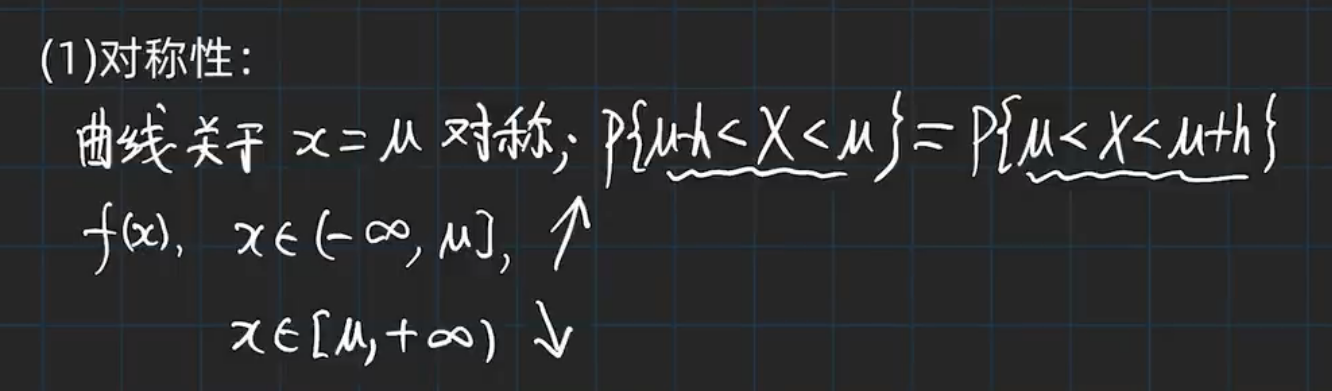 (1)对称性:
曲线关于 x=μ 对称; P{μ-h<X<μ}=P{μ<X<μ+h}
f(x), x∈(-∞,μ], ↑
x∈[μ,+∞) ↓